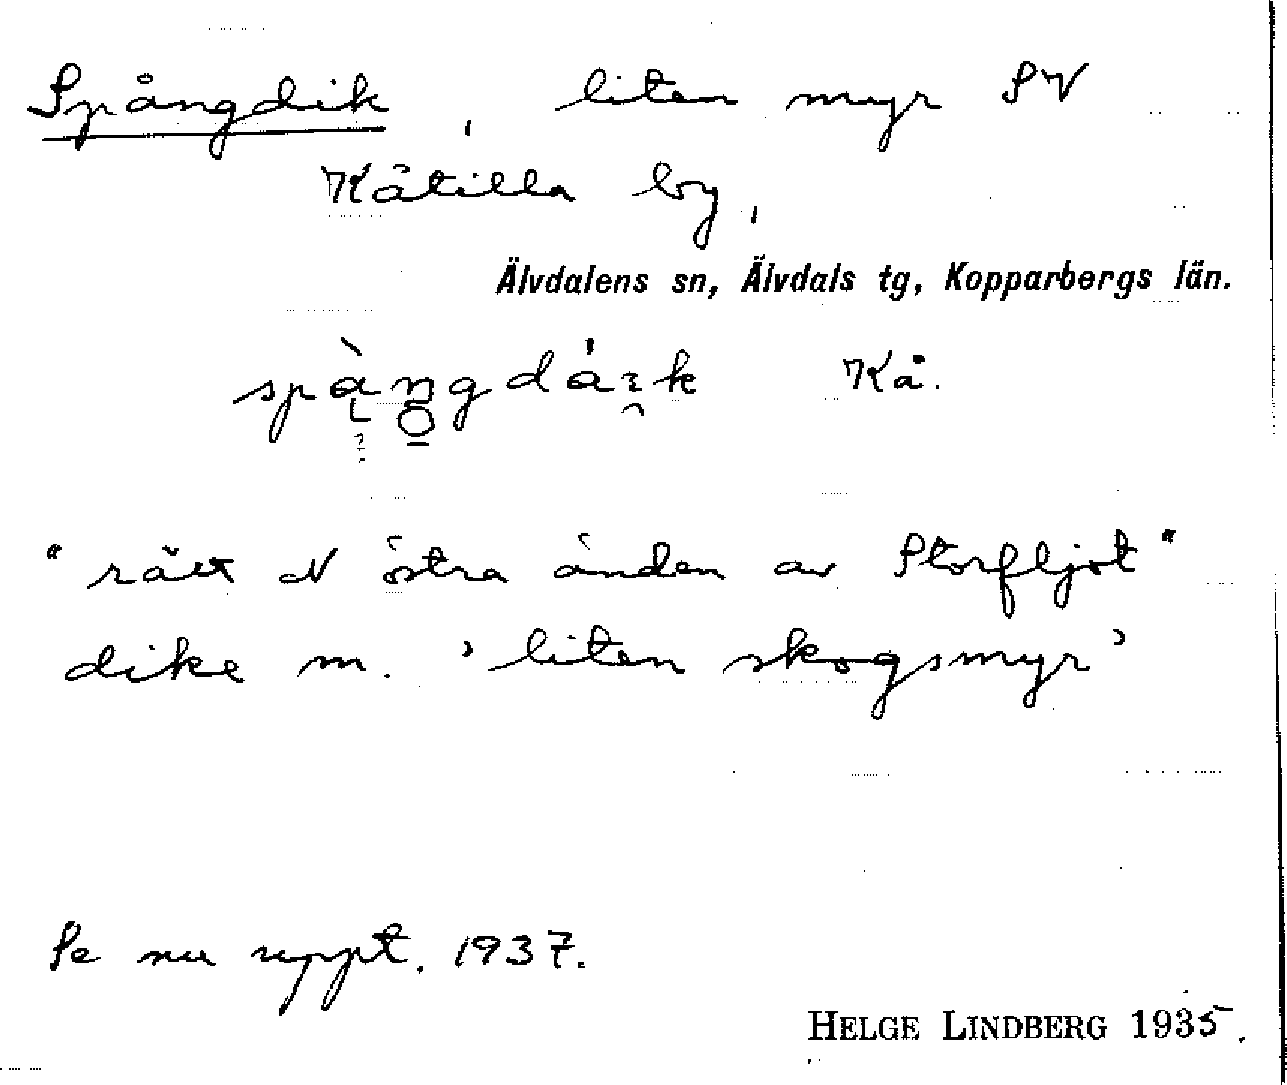 Spångdik, liten myr SV
Kåtilla by,
Älvdalens sn, Älvdals tg, Kopparbergs län.
Kå.
"rätt N östra ändan av Storfljot"
dike m. 'liten skogsmyr'
Se nu uppt. 1937.
HELGE LINDBERG 1935.